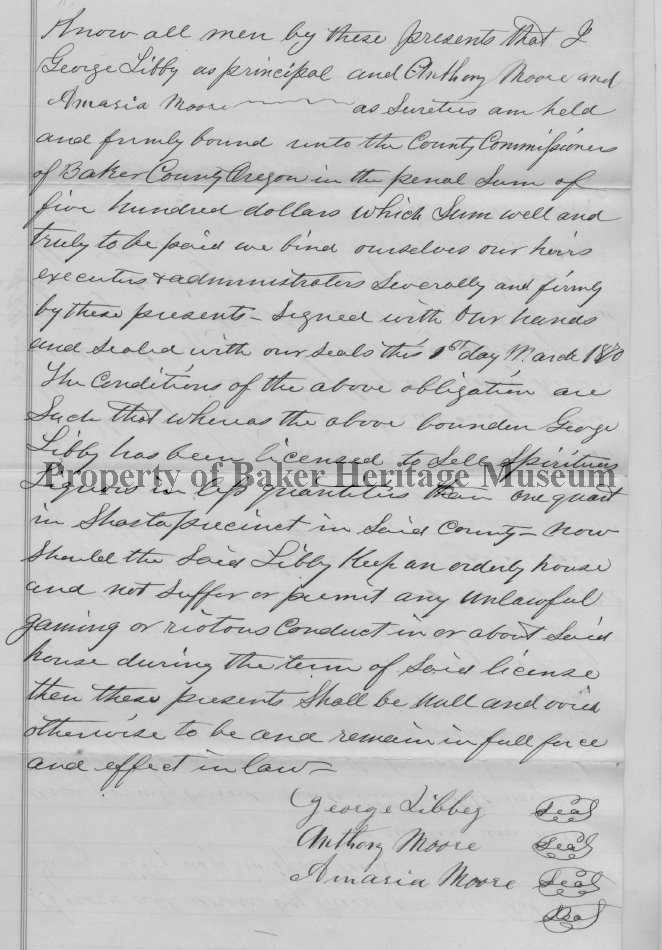 Know all men by these presents that I
George Libby as principal and Anthony Moore and
Amasia Moore as Sureters am held
and firmly bound unto the County Commissioners
of Baker County Oregon in the penal Sum of
five hundred dollars which Sum well and
truly to be paid we bind ourselves our heirs
executers & administrators Severally and firmly
by these presents - Signed with our hands
and sealed with our seals this 1st day March 1870
The Conditions of the above obligation are
Such that whereas the above bounden George
Libby has been licensed to Sell Spirituus
Property of Baker Heritage Museum
Liquors in less quantities than one quart
in Shasta precinct in Said County - now
Should the Said Libby Keep an orderly house
and not Suffer or permit any unlawful
gaming or riotous Conduct in or about Said
house during the term of Said license
then these presents Shall be null and void
otherwise to be and remain in full force
and effect in law -
George Libbey Seal
Anthony Moore Seal
Amasia Moore Seal
Seal